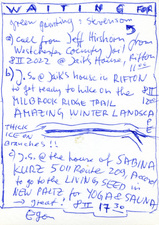 WAITING FOR
green painting : Stevenson
a) call from Jeff Hirshorn from
Westchester Country Jail
8 II 2022 @ Jai's House, Rifton
b) J.S. @ Jai's house in RIFTON
to get ready to hike on the 8 II
MILBROOK RIDGE TRAIL
AMAZING WINTER LANDSCA
THICK
ICE on
BRANCHES!!
c) J.S. @ the house of SABINA
KURZ 501 Route 209, Accord
to go to the LIVING SEED in
NEW PALTZ for YOGA & SAUNA
→ great! 8 II 17 30